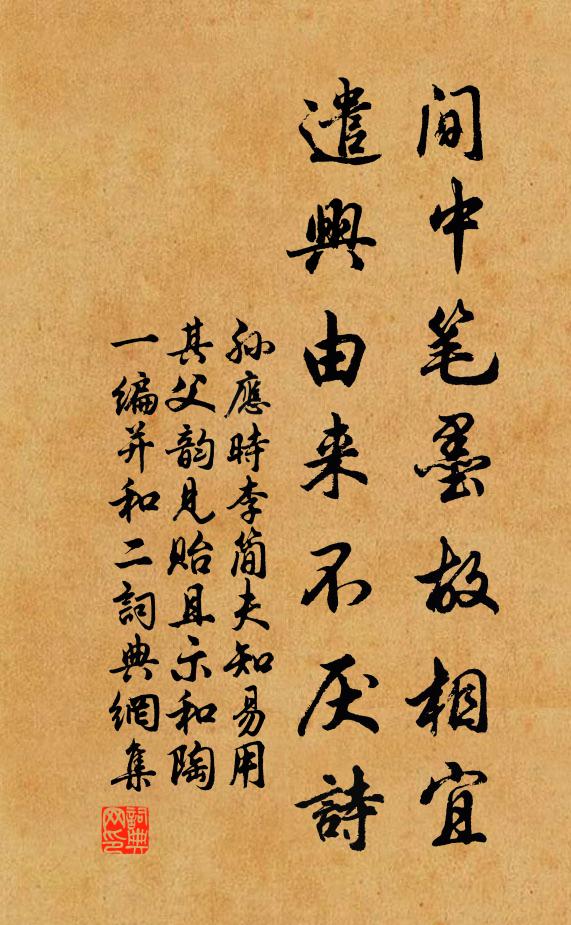 间中笔墨故相宜
遣興由来不厌詩
孙應時李简夫知易用
其父韵见贻且示和陶
一编并和二詞典網集
詞典网印